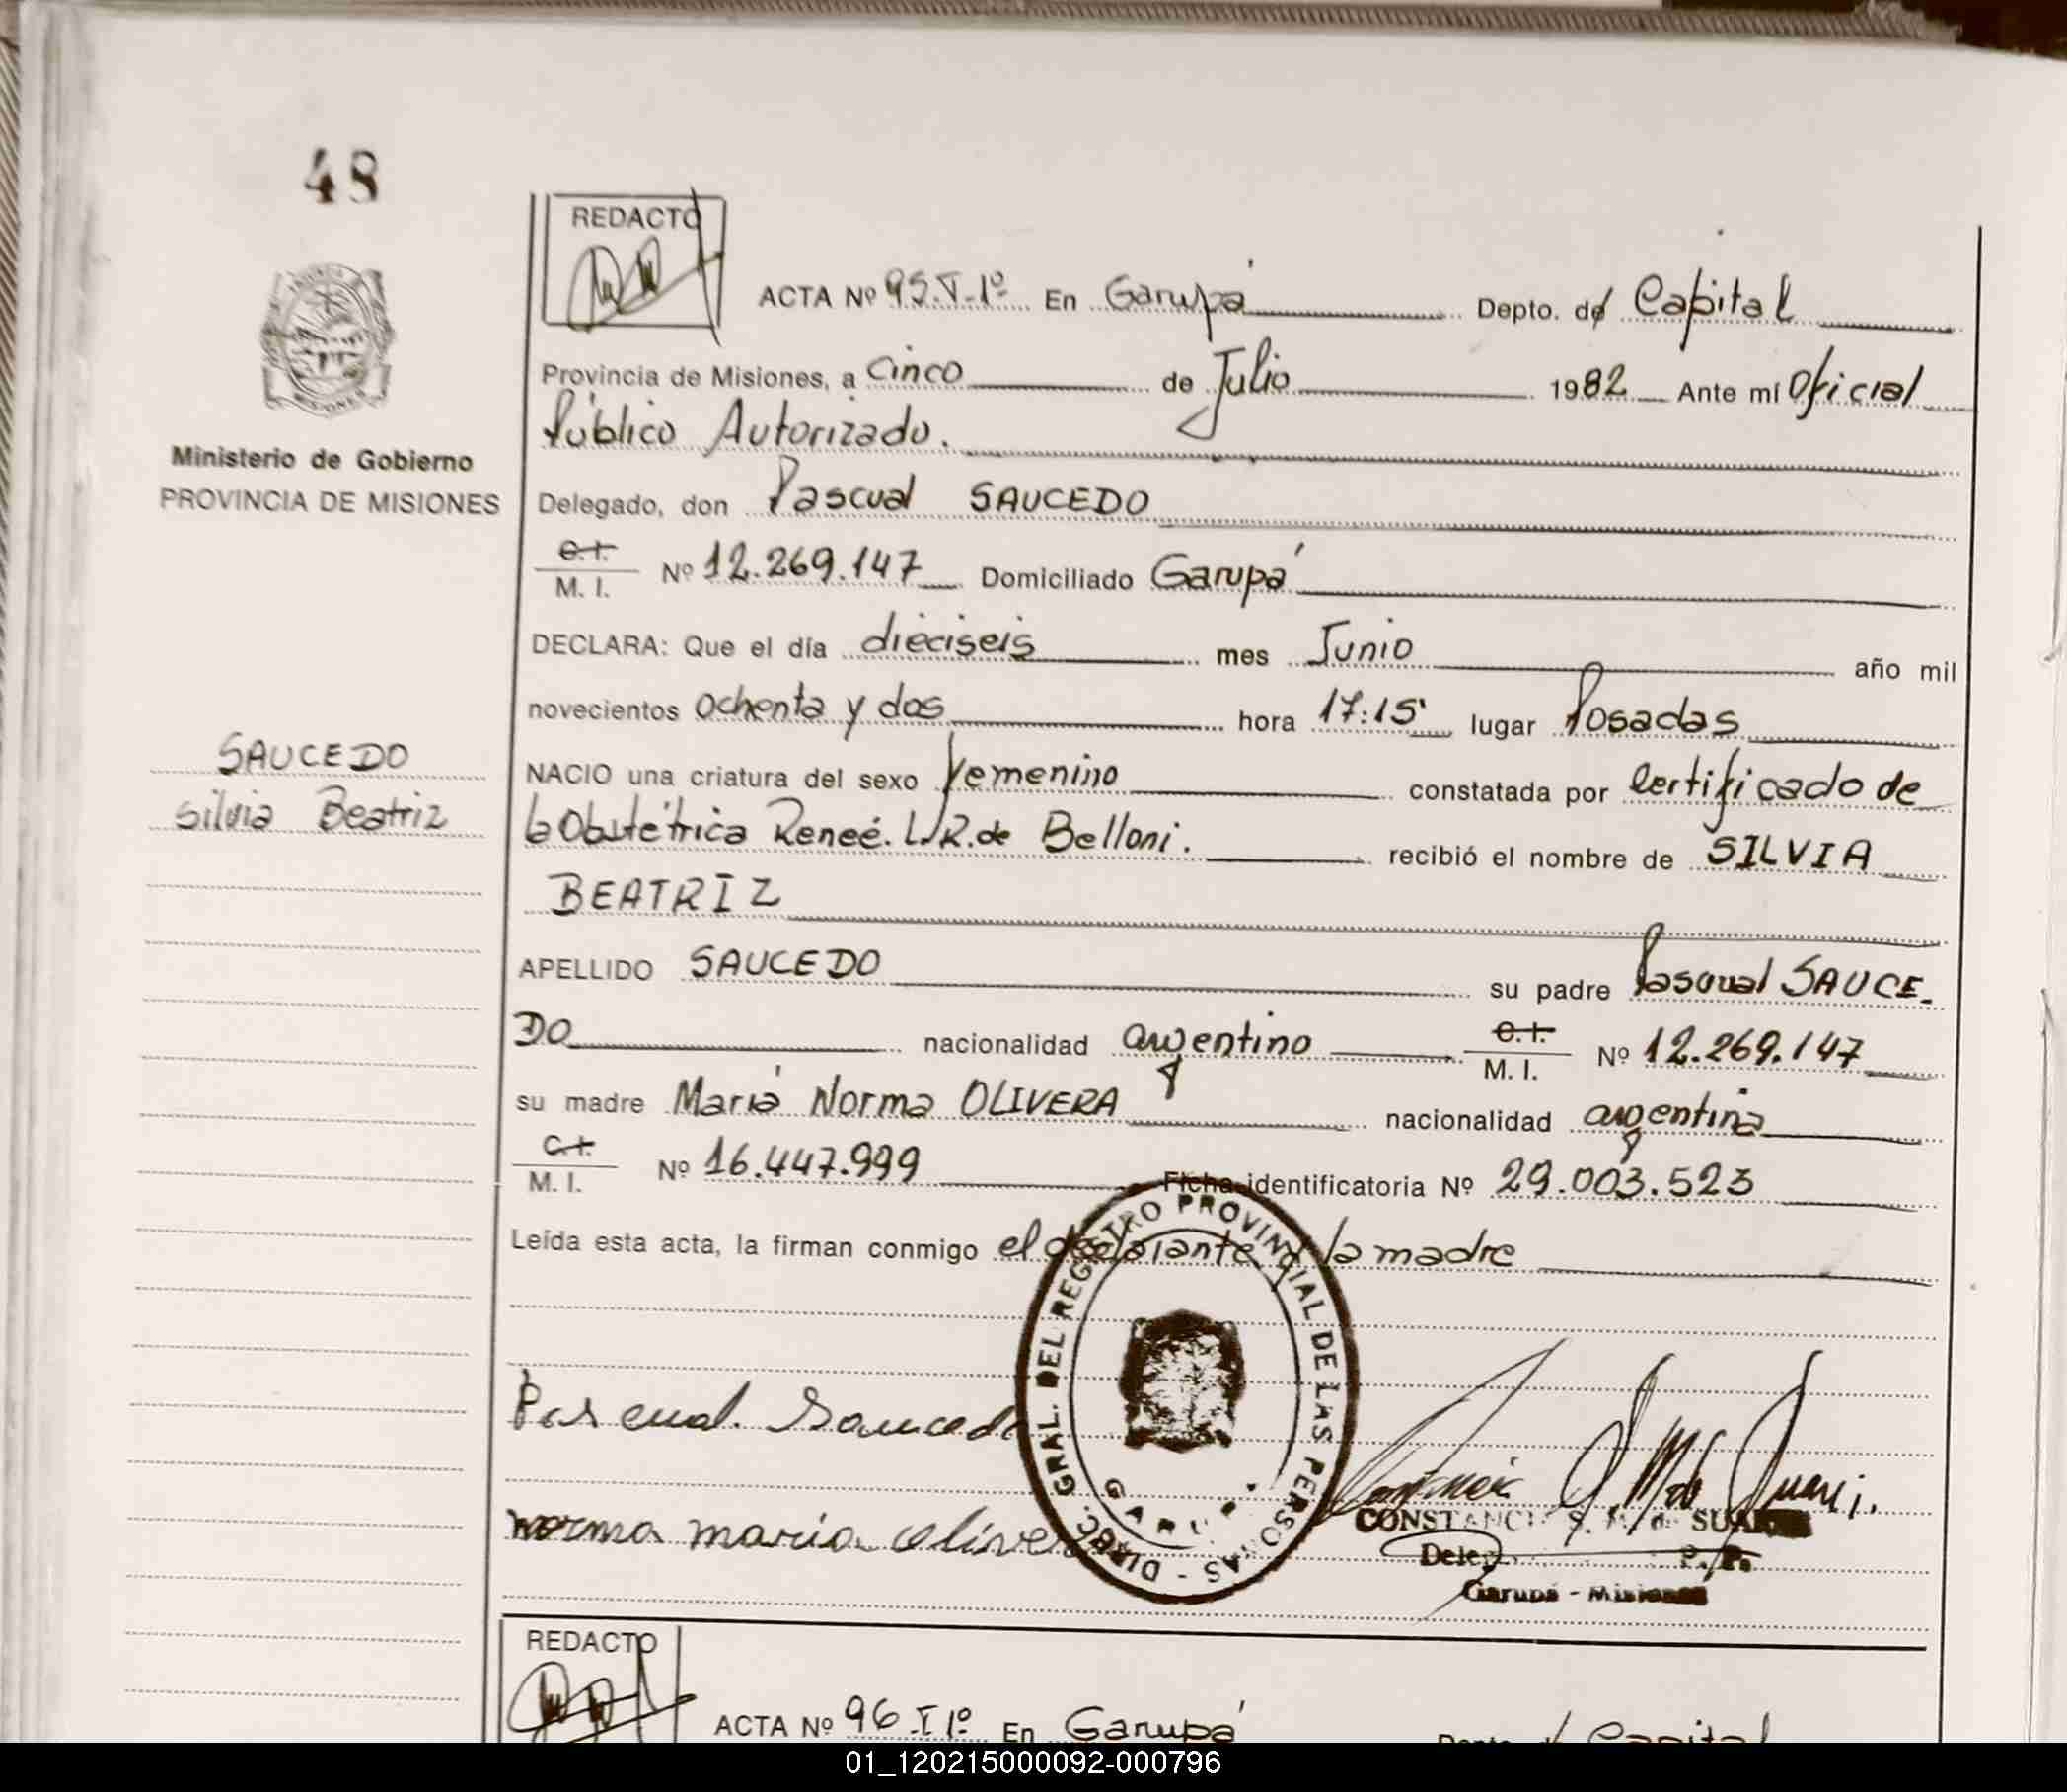 48
REDACTO
ACTA Nº 95.T-1º En Garupá Depto. de Capital
Provincia de Misiones, a Cinco de Julio 1982 Ante mí Oficial
Público Autorizado.
Ministerio de Gobierno
PROVINCIA DE MISIONES
Delegado, don Pascual SAUCEDO
C.I. M. I. Nº 12.269.147 Domiciliado Garupá
DECLARA: Que el día dieciseis mes Junio año mil
novecientos ochenta y dos hora 17:15' lugar Posadas
SAUCEDO
Silvia Beatriz
NACIO una criatura del sexo femenino constatada por Certificado de
la Obstétrica Reneé. W.R. de Belloni. recibió el nombre de SILVIA
BEATRIZ
APELLIDO SAUCEDO su padre Pascual SAUCE-
DO nacionalidad argentino C.I. M. I. Nº 12.269.147
su madre María Norma OLIVERA nacionalidad argentina
C.I. M. I. Nº 16.447.999 Ficha identificatoria Nº 29.003.523
Leída esta acta, la firman conmigo el declarante y la madre
Pascual Saucedo
norma maria olivera
DIREC. GRAL. DEL REGISTRO PROVINCIAL DE LAS PERSONAS -
GARUPA
CONSTANCIA S. M. de SUAREZ
Garupá - Misiones
REDACTO
ACTA Nº 96.T1º En Garupá Depto. de Capital
01_120215000092-000796